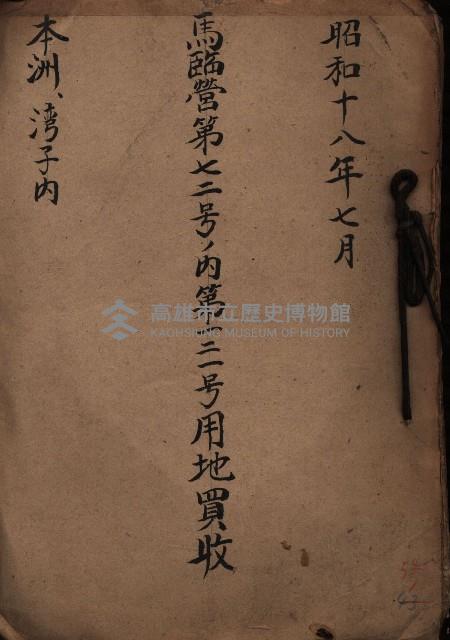 昭和十八年七月
馬臨營第七二号ノ内第十二一号用地買收
本洲、湾子内
高雄市立歷史博物館
KAOHSIUNG MUSEUM OF HISTORY